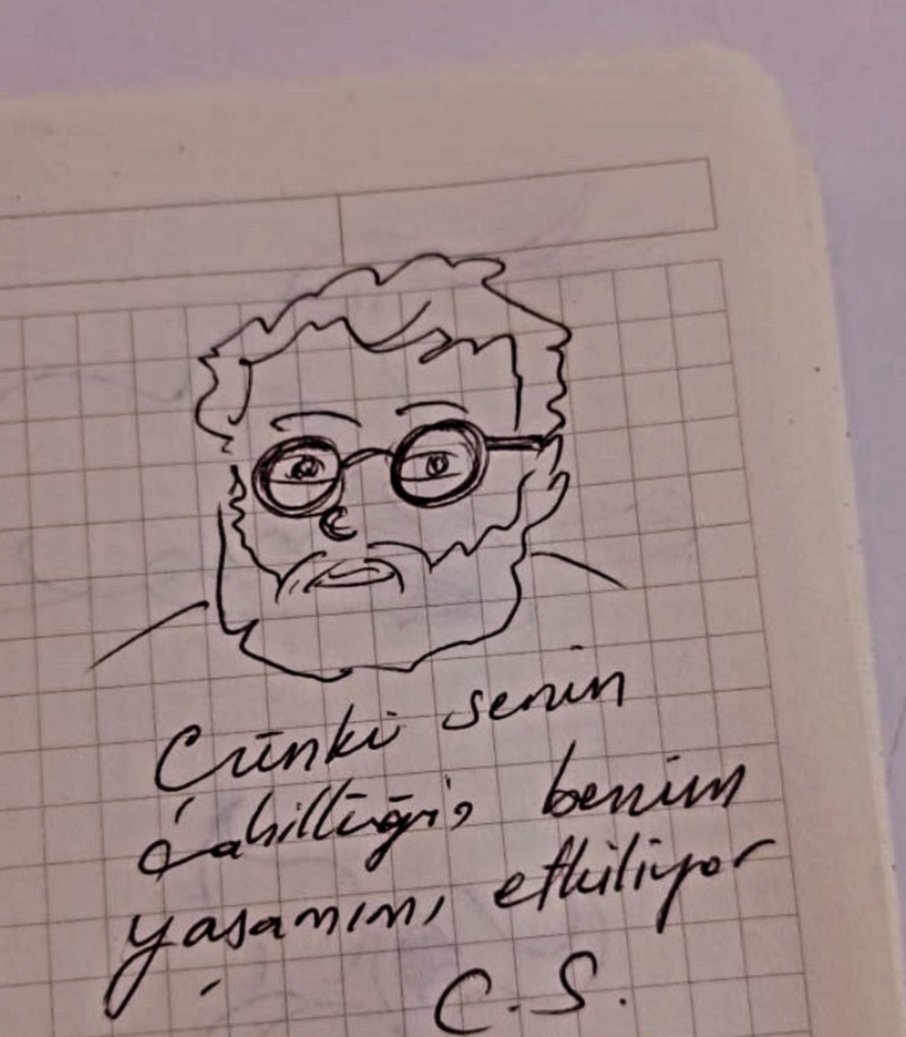 Cünki senin
cahilliğin benim
yaşamımı etkiliyor
C.S.